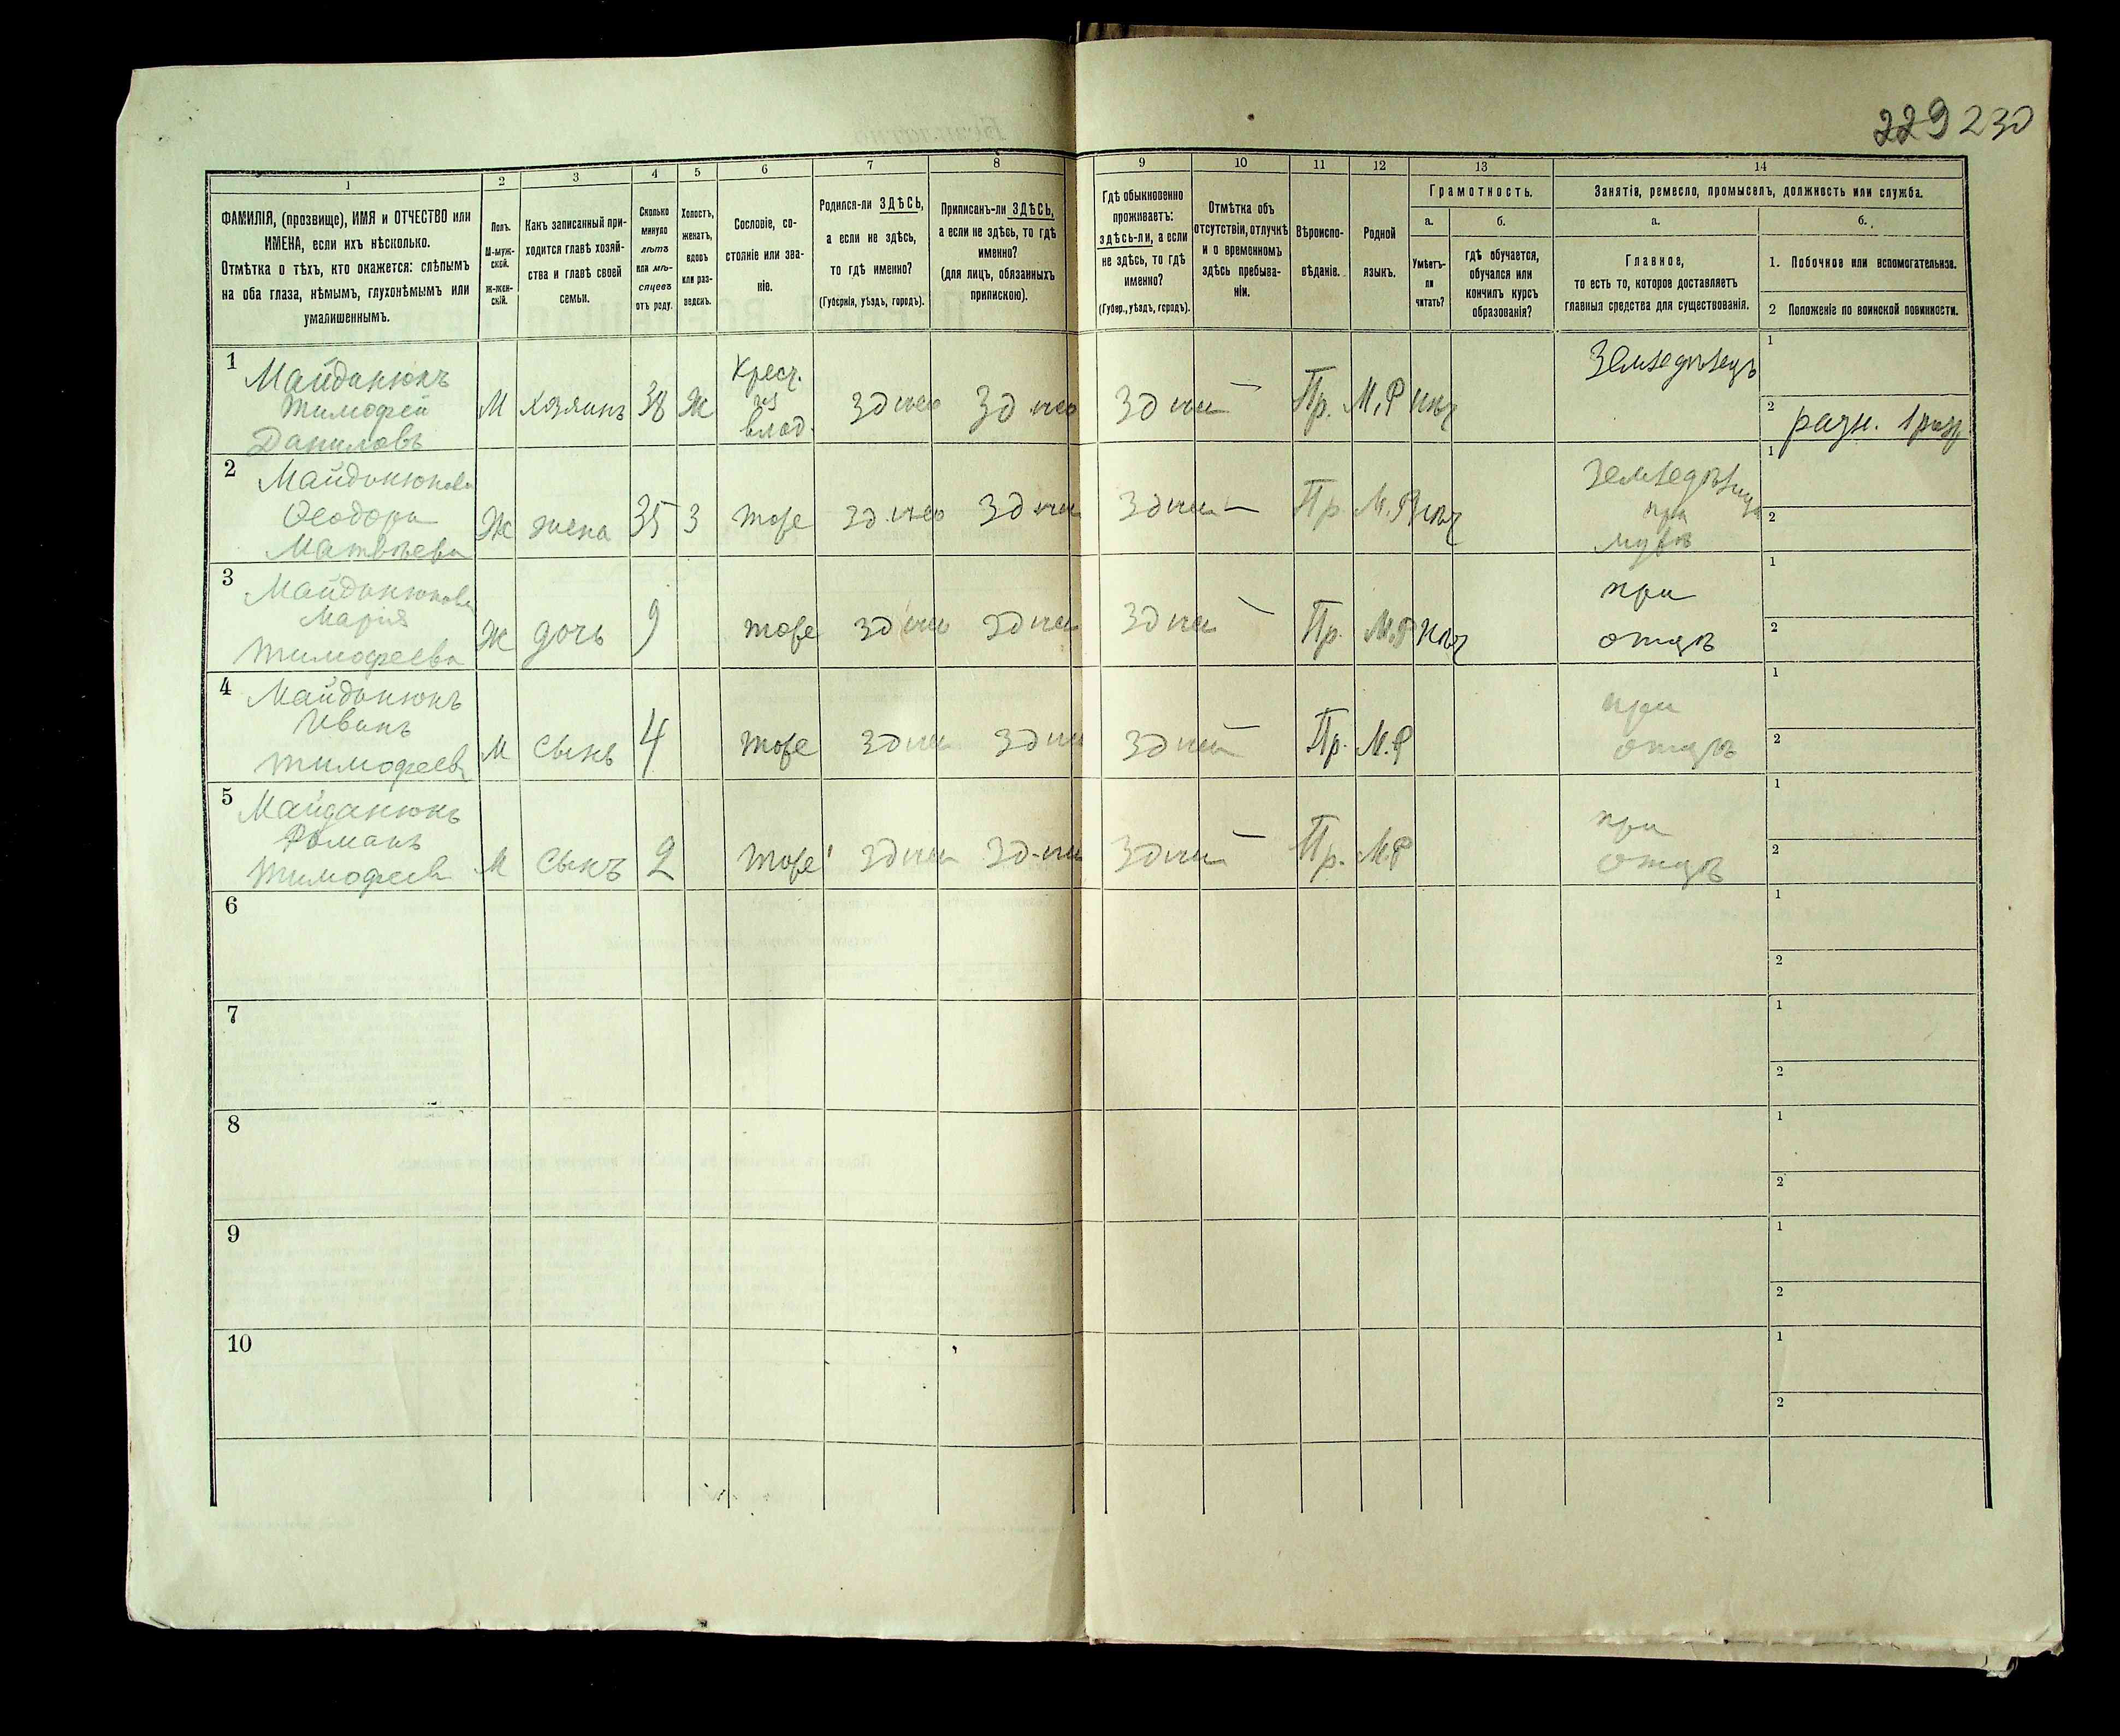 229 230
1
2
3
4
5
6
7
8
9
10
11
12
13
14
ФАМИЛІЯ, (прозвище), ИМЯ и ОТЧЕСТВО или
ИМЕНА, если ихъ нѣсколько.
Отмѣтка о тѣхъ, кто окажется: слѣпымъ
на оба глаза, нѣмымъ, глухонѣмымъ или
умалишеннымъ.
Полъ.
М-муж-
ской.
Ж-жен-
скій.
Какъ записанный при-
ходится главѣ хозяй-
ства и главѣ своей
семьи.
Сколько
минуло
лѣтъ
или мѣ-
сяцевъ
отъ роду.
Холостъ,
женатъ,
вдовъ
или раз-
веденъ.
Сословіе, со-
стояніе или зва-
ніе.
Родился-ли ЗДѢСЬ,
а если не здѣсь,
то гдѣ именно?
(Губернія, уѣздъ, городъ).
Приписанъ-ли ЗДѢСЬ,
а если не здѣсь, то гдѣ
именно?
(для лицъ, обязанныхъ
припискою).
Гдѣ обыкновенно
проживаетъ:
здѣсь-ли, а если
не здѣсь, то гдѣ
именно?
(Губер., уѣздъ, городъ).
Отмѣтка объ
отсутствіи, отлучкѣ
и о временномъ
здѣсь пребыва-
ніи.
Вѣроиспо-
вѣданіе.
Родной
языкъ.
Грамотность.
а.
б.
Умѣетъ-
ли
читать?
гдѣ обучается,
обучался или
кончилъ курсъ
образованія?
Занятія, ремесло, промыселъ, должность или служба.
а.
б.
Главное,
то есть то, которое доставляетъ
главныя средства для существованія.
1. Побочное или вспомогательное.
2 Положеніе по воинской повинности.
1
Майданюкъ
Тимофей
Даниловъ
М
хозяинъ
38
Ж
Крест.
из
влад.
Пр.
М.Р
Земледѣлецъ
1
2
2
Майданюкова
Ѳеодора
Матвѣева
Ж
жена
35
З
тоже
Пр
М.Р
при
мужѣ
1
2
3
Майданюкова
Марія
Тимофеева
Ж
дочь
9
тоже
Пр.
М.Р
при
отцѣ
1
2
4
Майданюкъ
Иванъ
Тимофеевъ
М
сынъ
4
тоже
Пр.
М.Р
при
отцѣ
1
2
5
Майданюкъ
Романъ
Тимофеевъ
М
сынъ
2
тоже
Пр.
М.Р
при
отцѣ
1
2
6
1
2
7
1
2
8
1
2
9
1
2
10
1
2